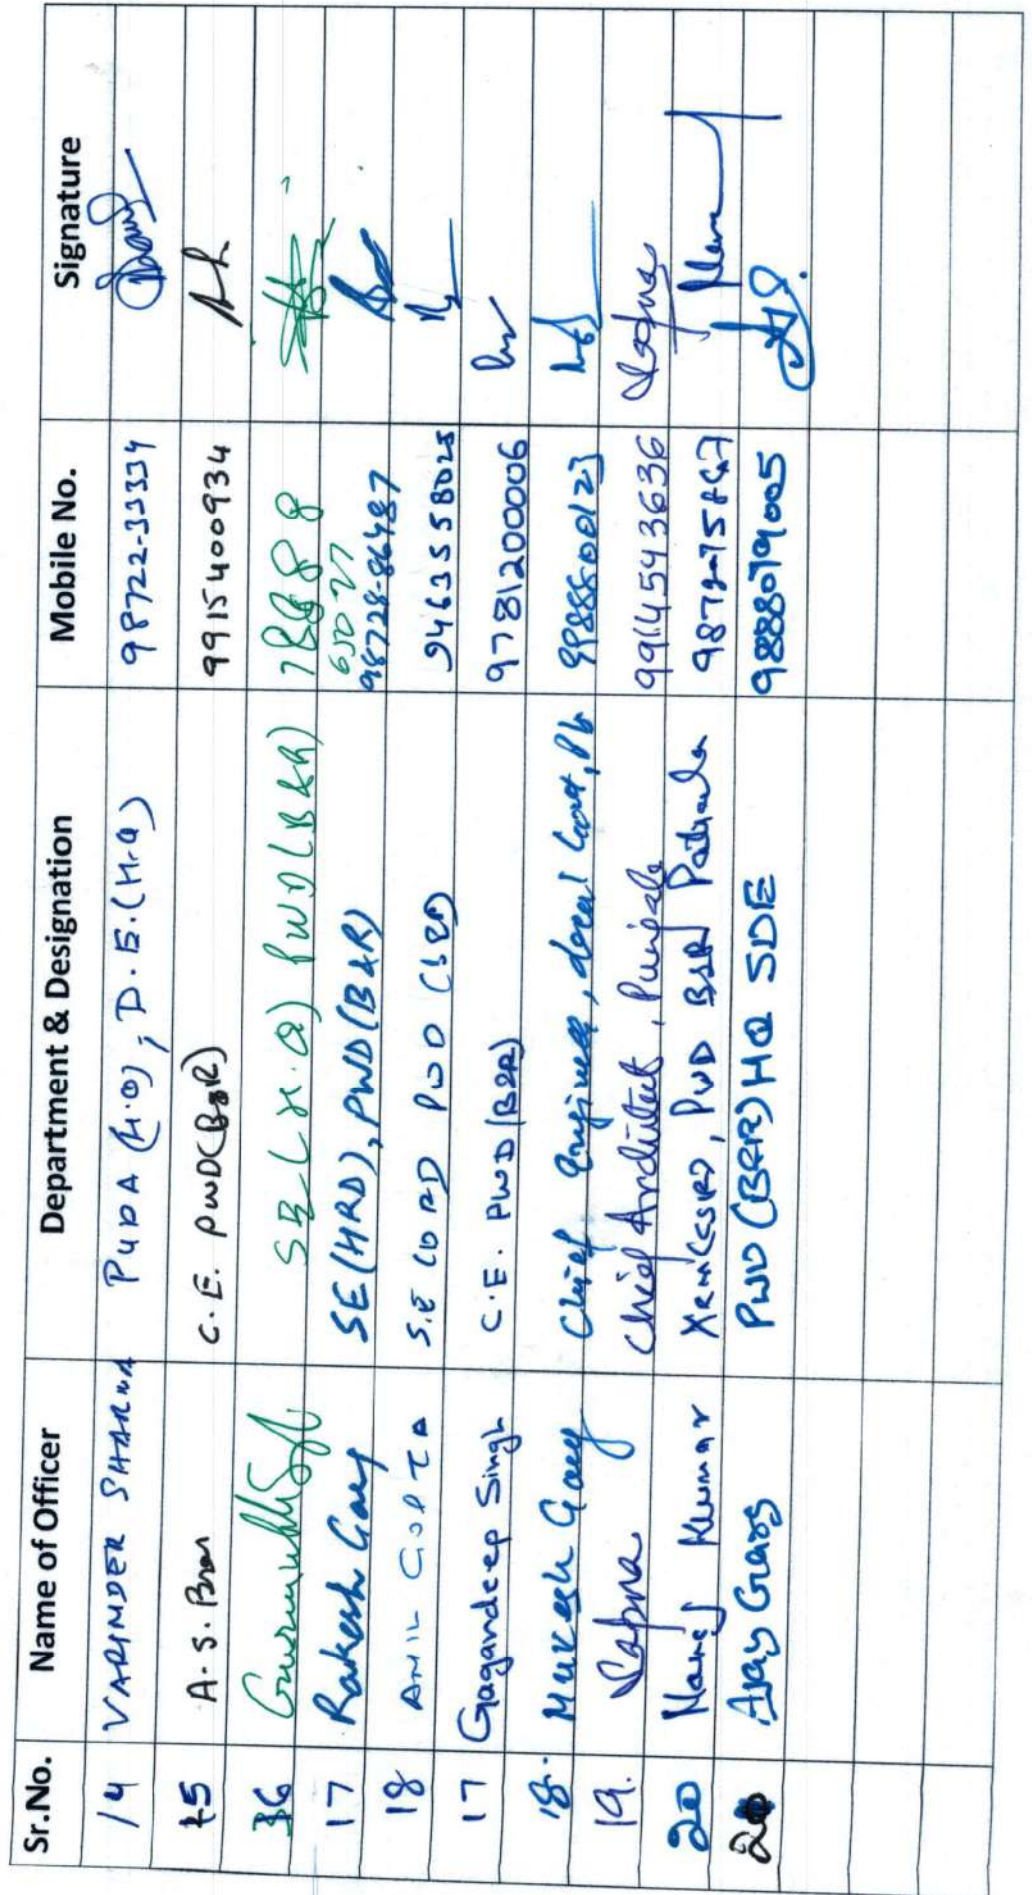 Sr.No. Name of Officer Department & Designation Mobile No. Signature
14 VARINDER SHARMA PUDA (H.O), D.E.(H.Q) 98722-33334
15 A.S. Brar C.E. PWD(B&R) 9915400934
16 SE (H.Q) PWD(B&R) 78888
65027
17 Rakesh Garg SE(HRD), PWD(B&R) 98728-06487
18 ANIL GUPTA S.E PWD 9463558025
17 Gagandeep Singh C.E. PWD(B&R) 9781200006
18. Mukesh Garg Chief Engineer, Local Govt, Pb 9988500123
19. Sapna Chief Architect, Punjab 9914543636 Sapna
20 Kumar PWD B&R Patiala
Ajay Garg PWD (B&R) HQ SDE